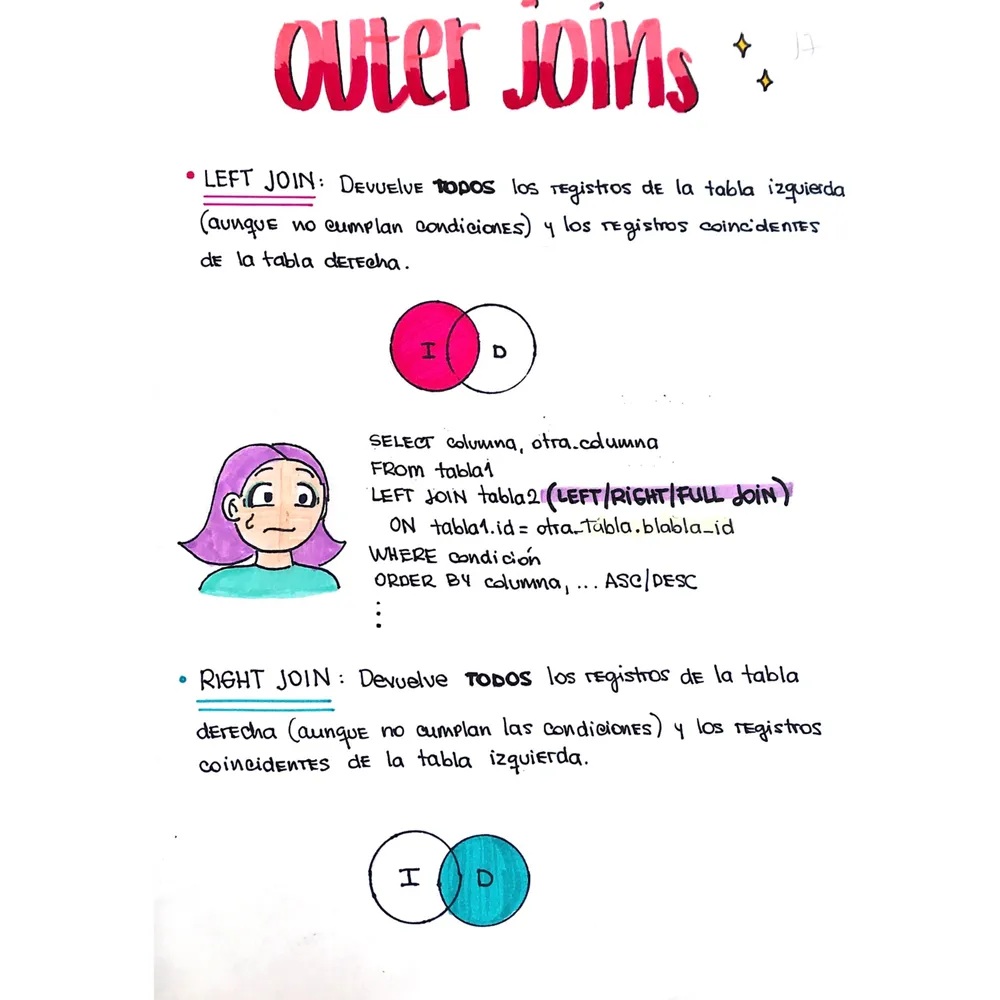 outer joins
17
• LEFT JOIN: DEVUELVE TODOS los registros DE la tabla izquierda
(aunque no cumplan condiciones) y los registros coincidentes
DE la tabla derecha.
I D
SELECT columna, otra_columna
FROM tabla1
LEFT JOIN tabla2 (LEFT/RIGHT/FULL JOIN)
ON tabla1.id = otra_tabla.blabla_id
WHERE condición
ORDER BY columna, ... ASC/DESC
⋮
• RIGHT JOIN: Devuelve TODOS los registros DE la tabla
derecha (aunque no cumplan las condiciones) y los registros
coincidentes DE la tabla izquierda.
I D